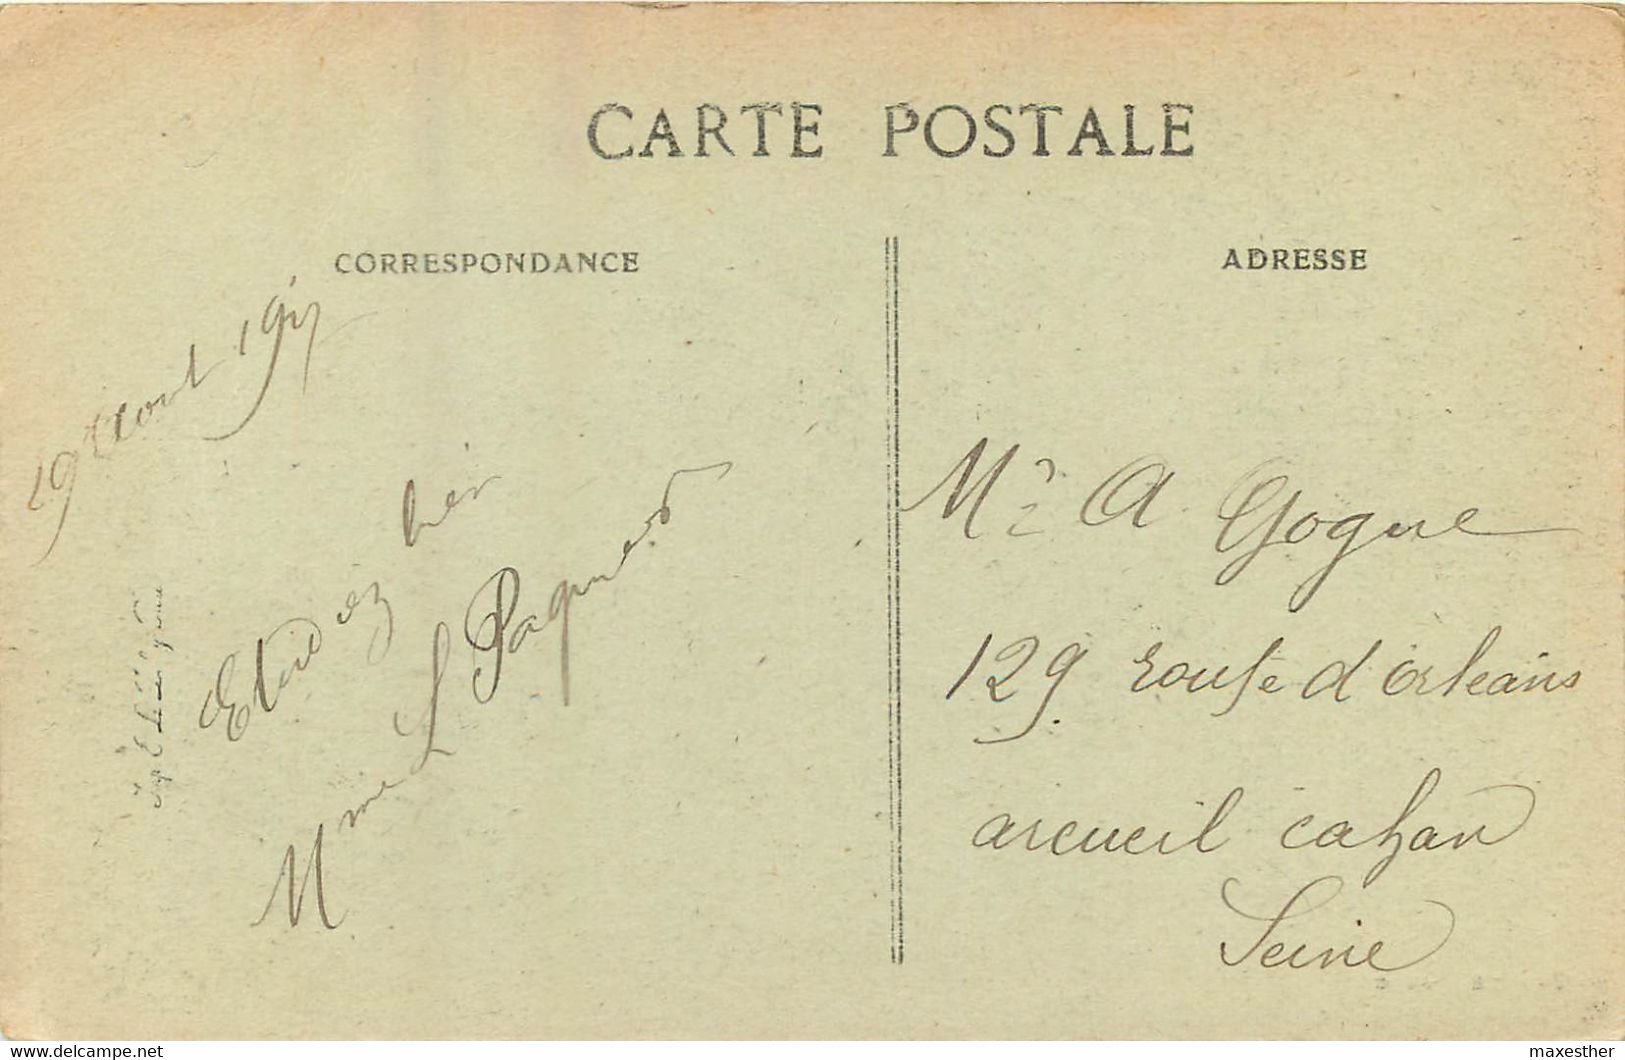 CARTE POSTALE
CORRESPONDANCE
ADRESSE
19 Aout 1917
Etudiez bien
Mme L Paquered
Mr A Gogue
129 route d'orleans
arcueil cahan
Seine
www.delcampe.net
maxesther